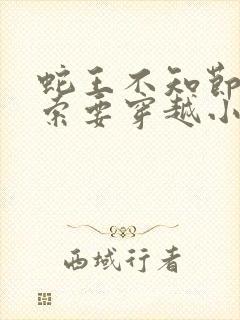 蛇王不知节
索要穿越小
西域行者